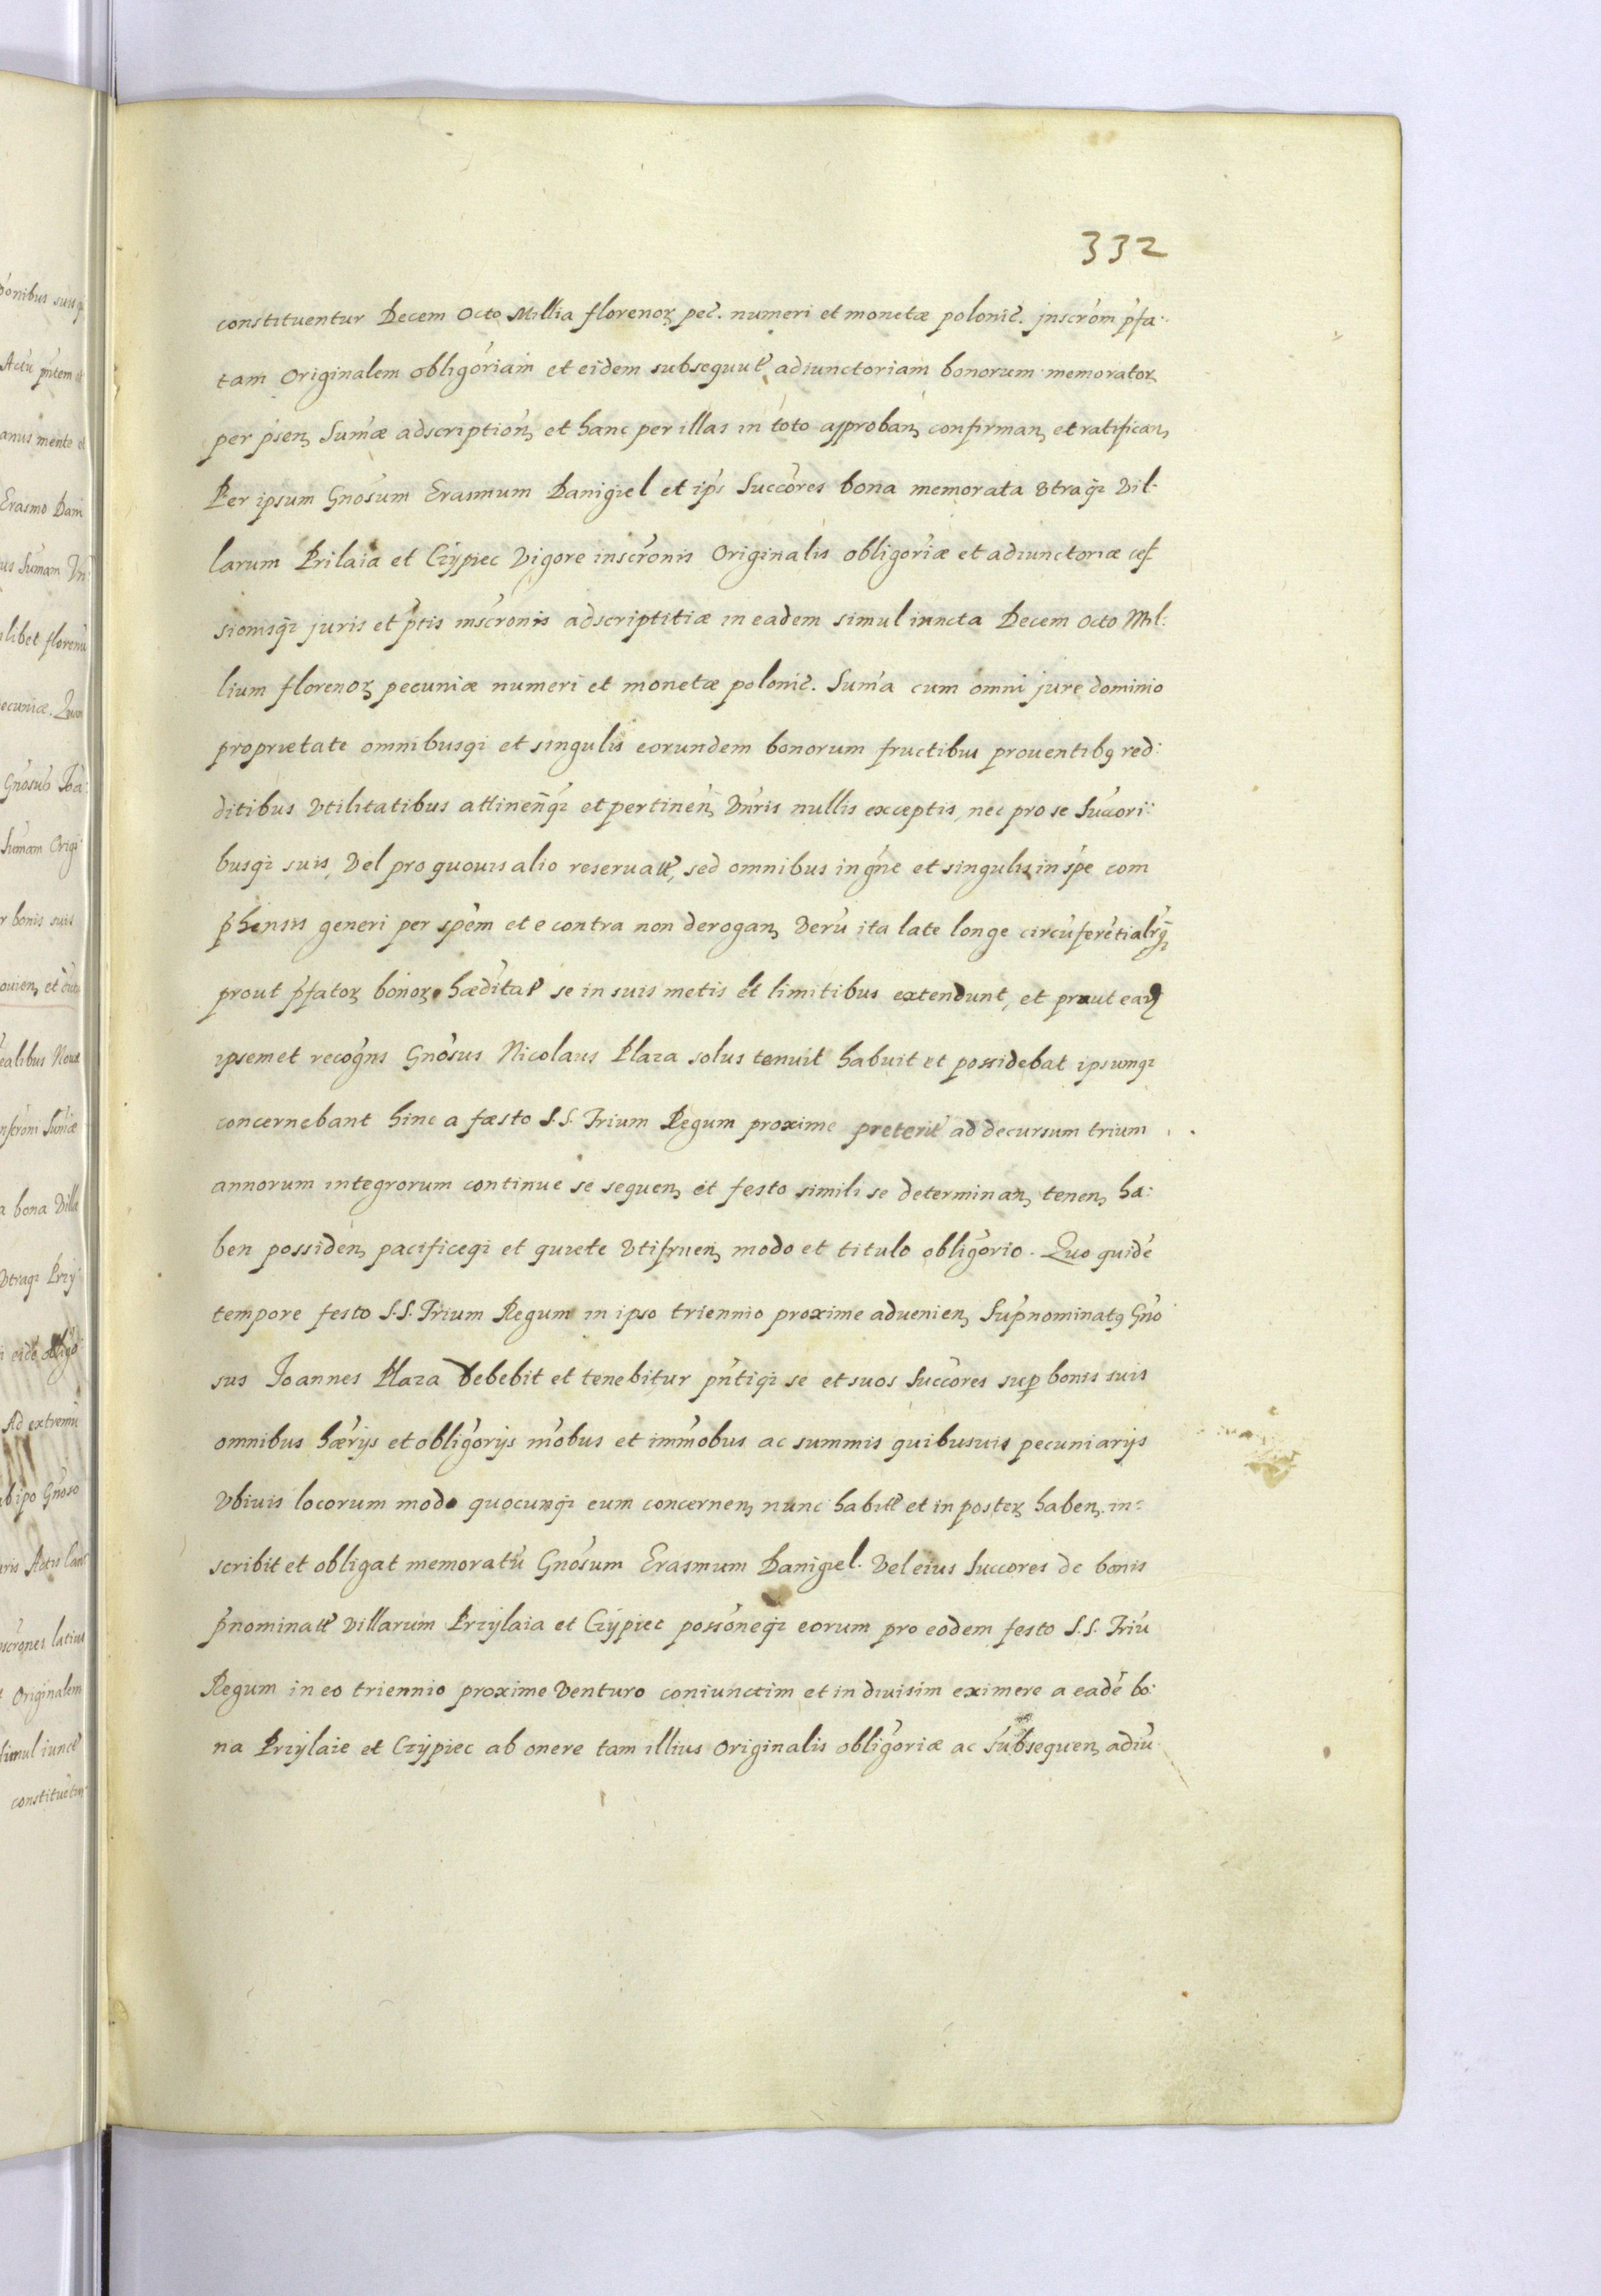 332
constituentur Decem Octo Millia florenoꝝ pec̃. numeri et monetæ polonic̃. jnscrõm p̃fa:
tam Originalem obligõriam et eidem subsequut̃ adiunctoriam bonorum memoratoꝝ
per p̃sen, Sum̃æ adscription, et hanc per illas in toto approban, confirman, et ratifican,
Per ipsum Gnõsum Erasmum Danigiel et ip̃s Succõres bona memorata Vtraq̃ꝫ Vil-
larum Prilaia et Czÿpiec Vigore inscrõnis Originalis obligõriæ et adiunctoriæ cef
sionisqꝫ juris et p̃tis inscrõnis adscriptitiæ in eadem simul iuncta Decem Octo Mil:
lium florenoꝝ pecuniæ numeri et monetæ polonic̃. Sum̃a cum omni jure dominio
proprietate omnibusqꝫ et singulis eorundem bonorum fructibus prouentibꝰ red:
ditibus Vtilitatibus attinen̄qꝫ et pertinen, Vñris nullis exceptis, nec pro se Succori:
busqꝫ suis, Vel pro quouis alio reseruat̃t, sed omnibus in gñe et singulis in sp̃e com
p̃hensis generi per spẽm et e contra non derogan, Verũ ita late longe circũferẽtialrq̃ꝫ
prout p̃fatoꝝ bonoꝝ hædĩtat̃ se in suis metis et limitibus extendunt, et prout eaꝗ
ipsemet recogñs Gnõsus Nicolaus Plaza solus tenuit habuit et possidebat ipsumqꝫ
concernebant hinc a fæsto S.S. Trium Regum proxime preterit̃ ad decursum trium
annorum integrorum continue se sequen, et festo simili se determinan, tenen, ha:
ben possiden, pacificeqꝫ et quiete Vtifruen, modo et titulo obligõrio. Quo quidẽ
tempore festo S.S. Trium Regum in ipso triennio proxime aduenien, Sup̃nominatꝰ Gnõ
sus Joannes Plaza debebit et tenebitur pñtiqꝫ se et suos Succõres sup bonis suis
omnibus hærijs et obligõrijs mõbus et immõbus ac summis quibusuis pecuniarijs
Vbiuis locorum modo quocunqꝫ eum concernen, nunc habit̃t et in posteꝝ haben, in:
scribit et obligat memoratũ Gnõsum Erasmum Danigiel. Vel eius Succores de bonis
p̃nominat̃t Villarum Przÿlaia et Czÿpiec possõneqꝫ eorum pro eodem festo S.S. Triũ
Regum in eo triennio proxime Venturo coniunctim et in diuisim eximere a eadẽ bo:
na Przÿlaie et Czÿpiec ab onere tam illius Originalis obligõriæ ac subsequen, adiũ